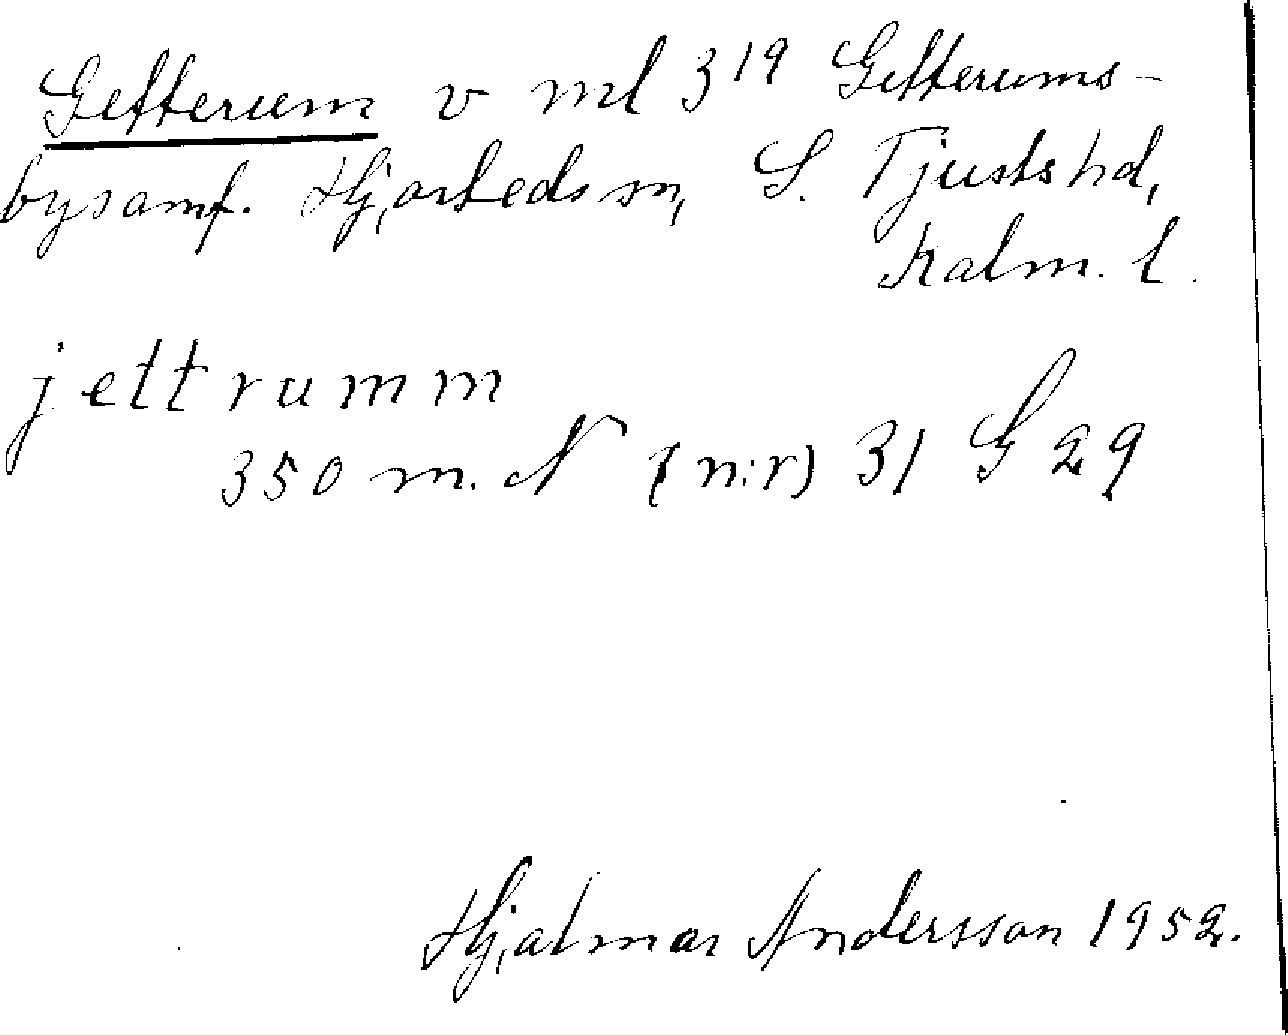 Getterum v ml 319 Getterums-
bysamf. Hjorteds sn, S. Tjusts hd,
Kalm. l.
jettrumm
350 m. N (n:r) 31 G 29
Hjalmar Andersson 1952.